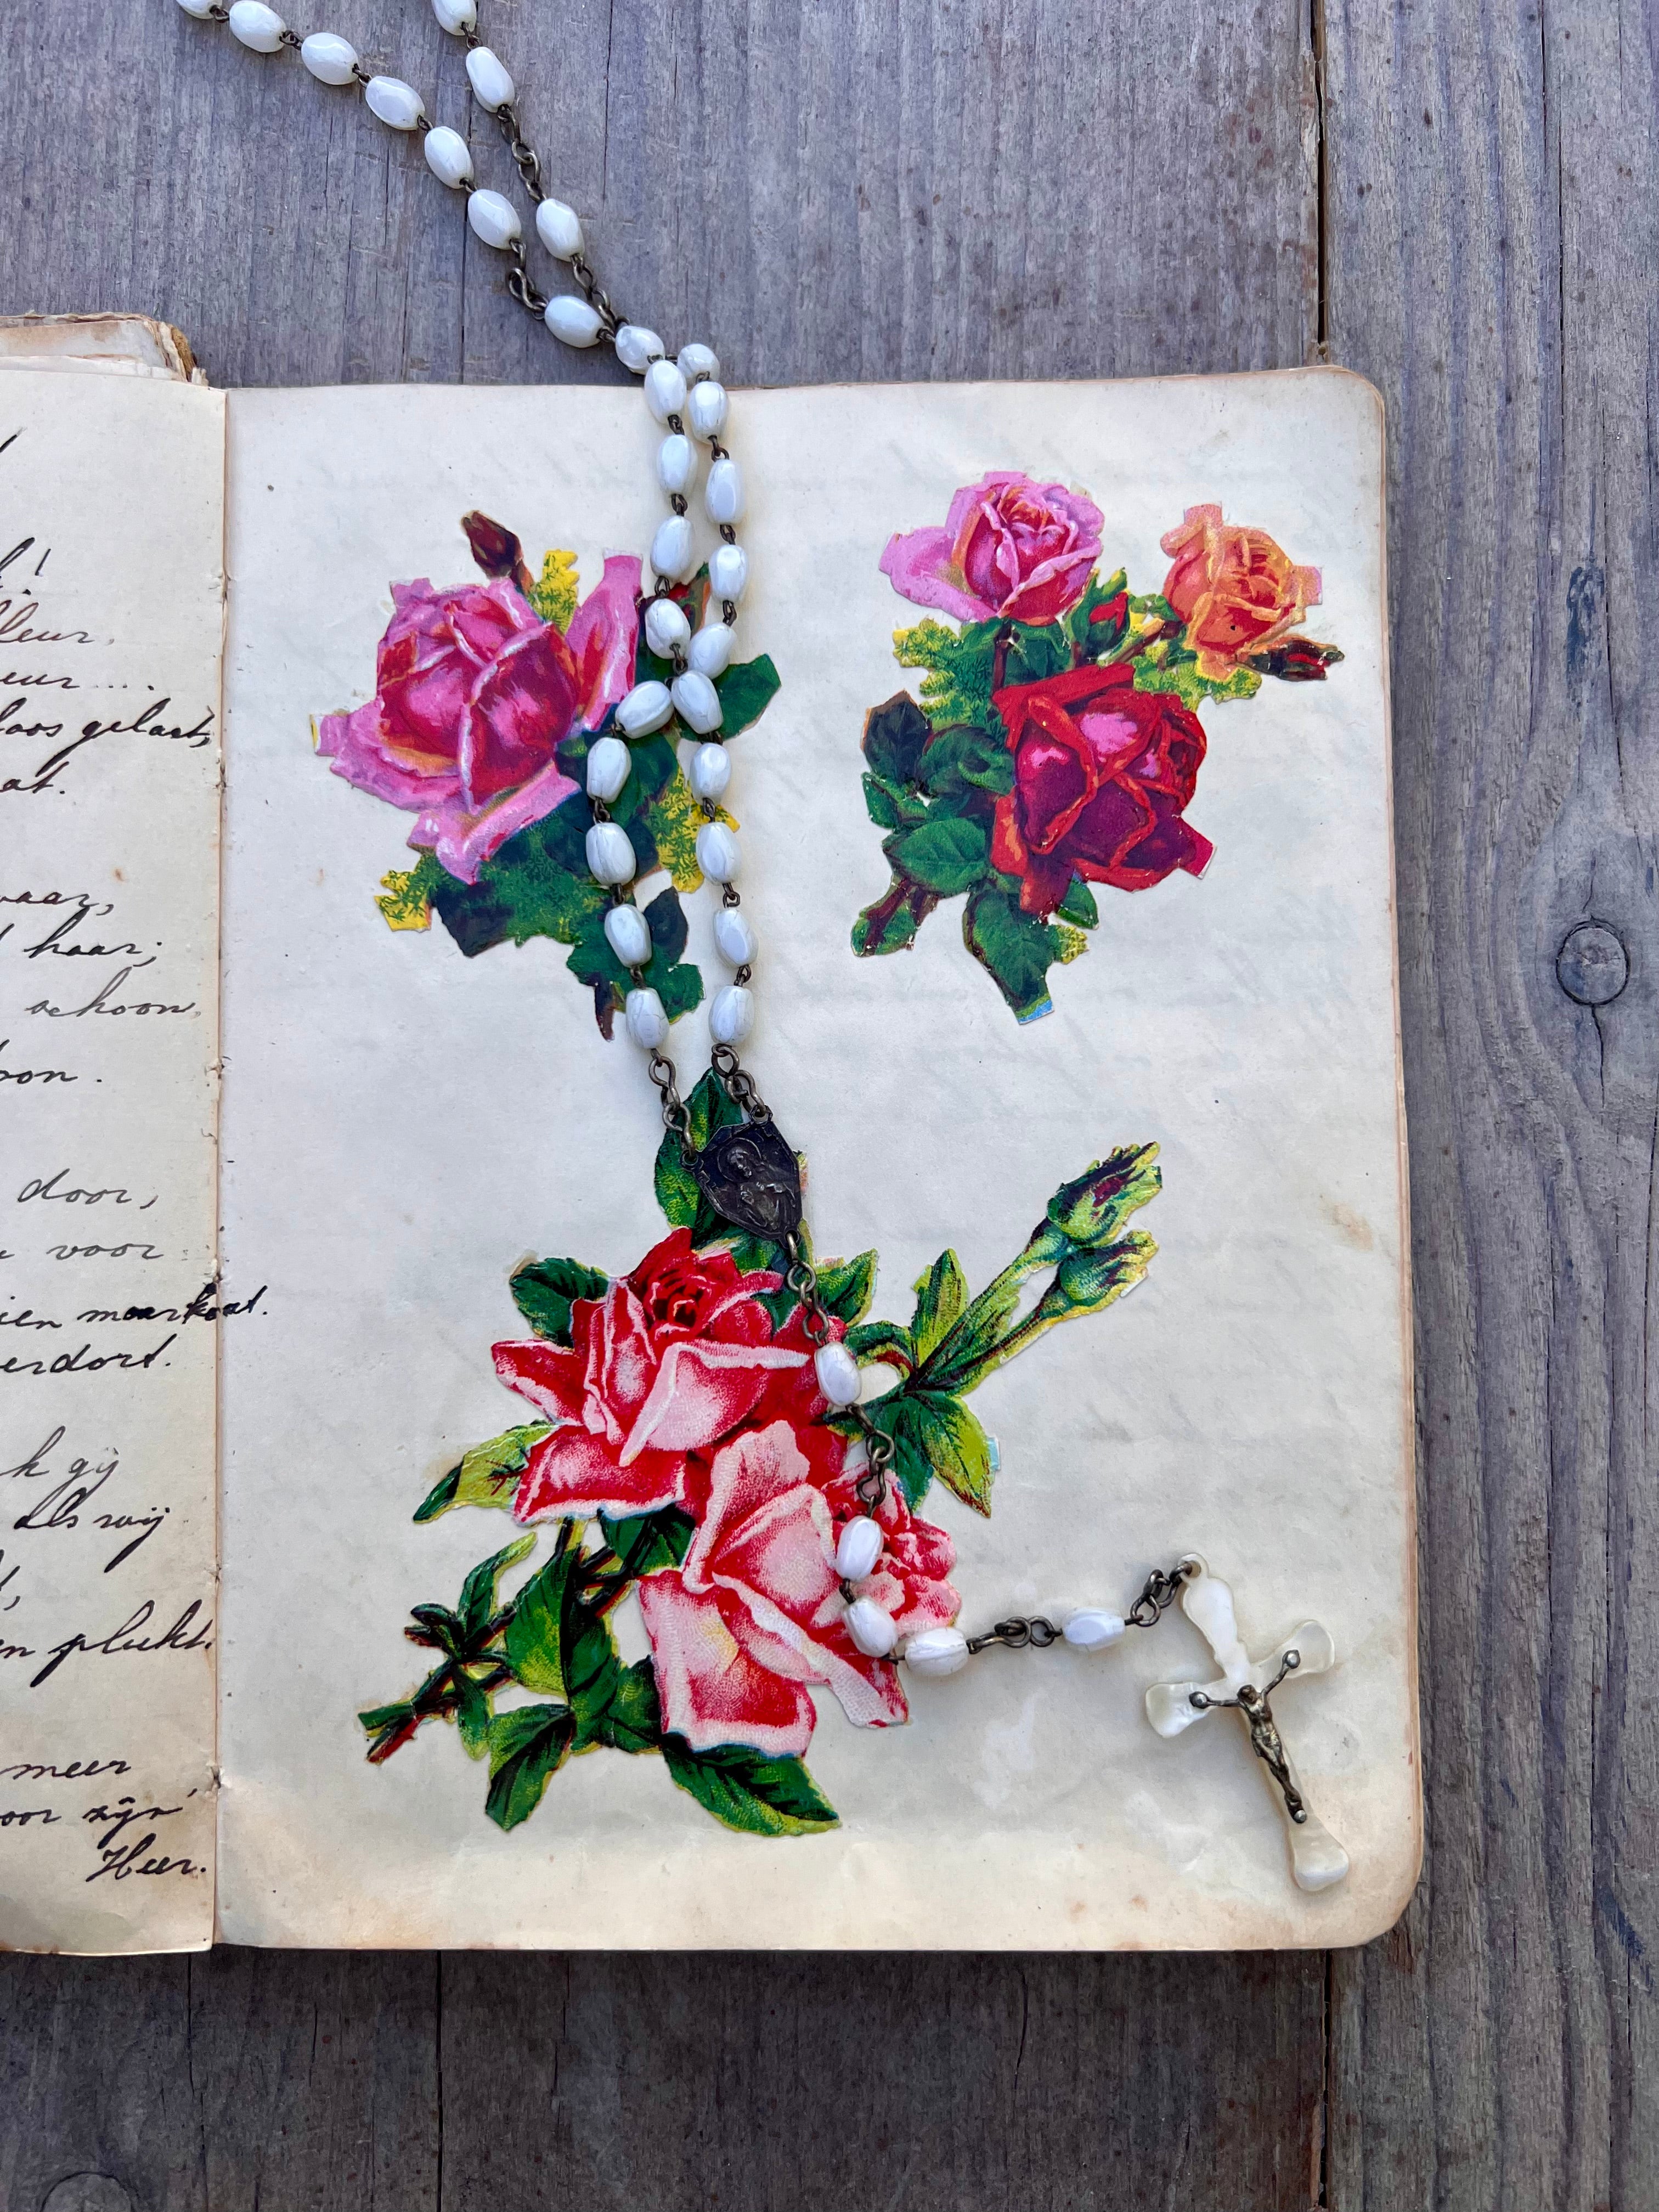 !
leur.
eur....
loos gelaat,
at.
waar,
haar;
schoon,
oon.
door,
voor
ien maarkort.
erdort.
k gij
als wij
en plukt.
meer
oor zijn
Heer.